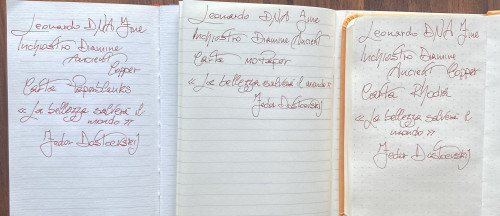 Leonardo DNA Fine
Inchiostro Diamine
Ancient
Copper
Carta Paperblanks
«La bellezza salverà il
mondo»
Fedor Dostoevskij
Leonardo DNA Fine
Inchiostro Diamine Ancient
Carta
«La bellezza salverà il mondo»
Fedor Dostoevskij
Leonardo DNA Fine
Inchiostro Diamine
Ancient Copper
Carta Rhodia
«La bellezza salverà il
mondo»
Fedor Dostoevskij